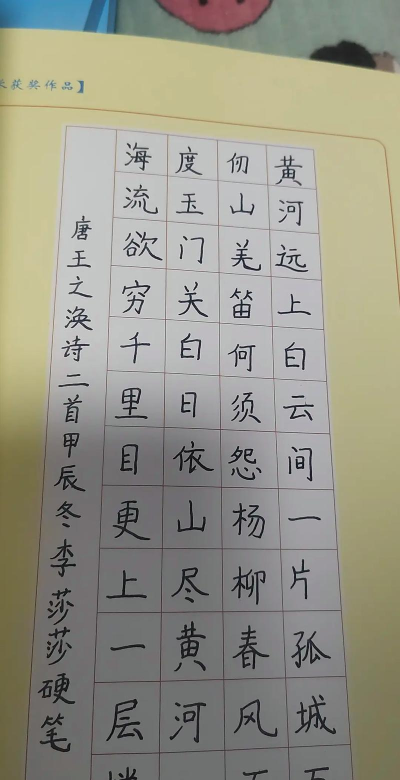 获奖作品】
黄河远上白云间一片孤城
仞山羌笛何须怨杨柳春风
度玉门关白日依山尽黄河
海流欲穷千里目更上一层
唐王之涣诗二首甲辰冬李莎莎硬笔